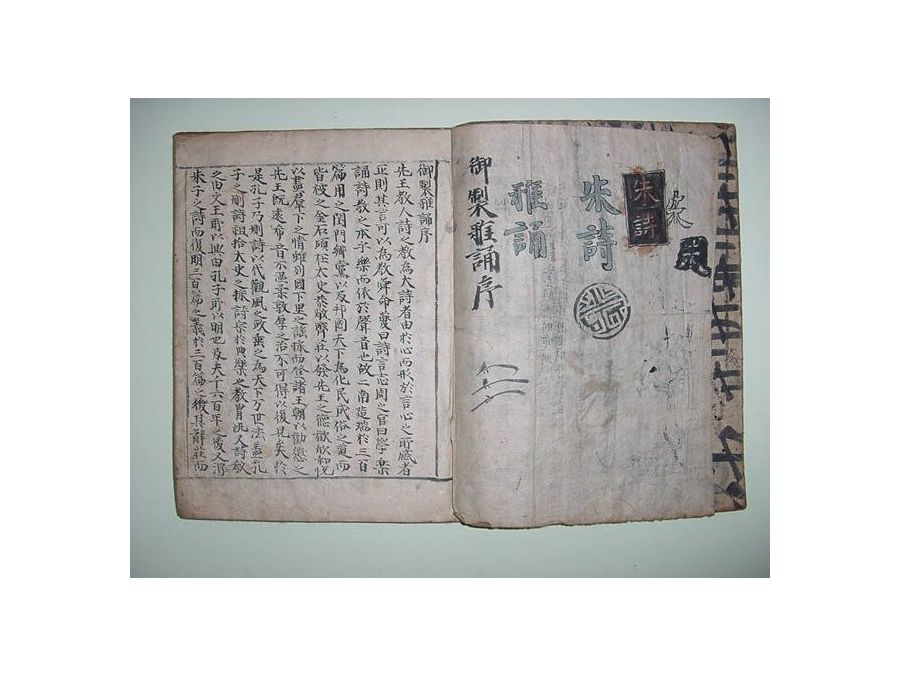 朱詩
朱詩
雅誦
御製雅誦序
御製雅誦序
先王教人詩之教為大詩者由於心而形於言心之所感者
正則其言可以為教舜命夔曰詩言志周之官曰學樂
誦詩教之本乎樂而依於聲音也故二南造端於三百
篇用之閨門鄉黨以及邦國天下為化民成俗之道而
皆被之金石頌在太史恭敬齊莊以發先王之德歡欣和悅
以盡羣下之情雖列國下里之謠採而俗諸王朝以勸懲之
先王旣遠希音不還柔敦厚之治亦可得以復見矣於
是孔子乃刪詩以代觀風之政垂之為天下万世法盖孔
子之刪詩祖於太史之採詩宗於典樂之教胄人詩教
之由文王所以興由孔子所以明也及夫千六百年之後又得
朱子之詩而復明三百篇之義於三百篇之後其辭莊而